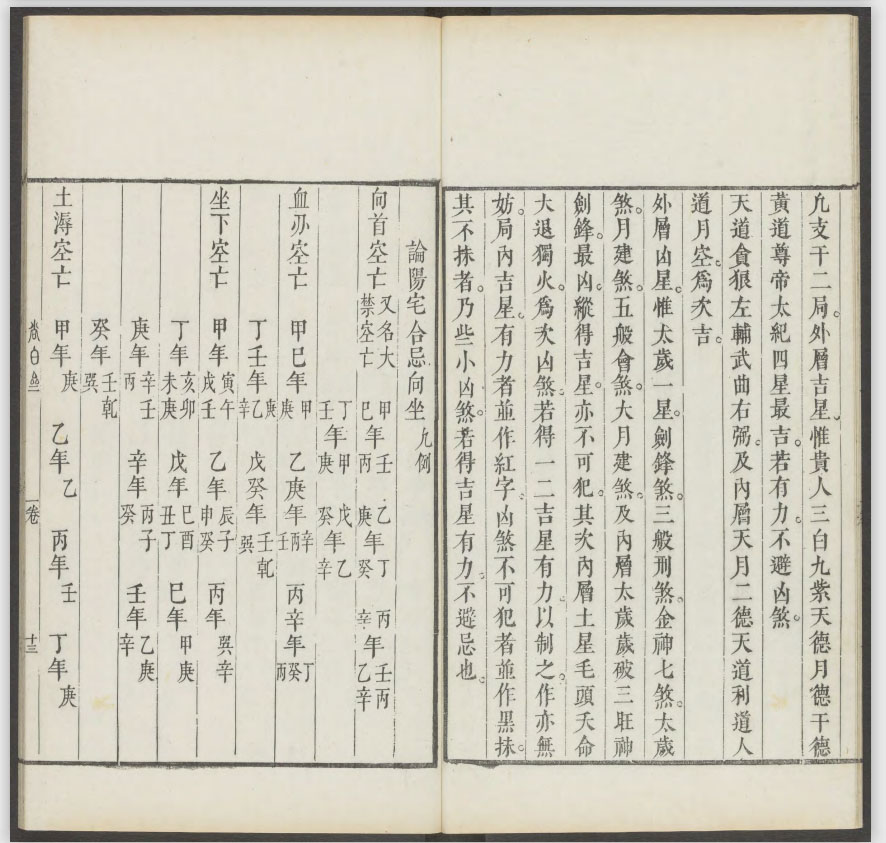 凢支干二局外層吉星惟貴人三白九紫天德月德干德
黃道尊帝太紀四星最吉若有力不避凶煞
天道貪狼左輔武曲右弼及內層天月二德天道利道人
道月空爲次吉
外層凶星惟太歲一星劍鋒煞三般刑煞金神七煞太歲
煞月建煞五般會煞大月建煞及內層太歲歲破三旺神
劍鋒最凶縱得吉星亦不可犯其次內層土星毛頭夭命
大退獨火爲次凶煞若得一二吉星有力以制之作亦無
妨局內吉星有力者並作紅字凶煞不可犯者並作黑抹
其不抹者乃些小凶煞若得吉星有力不避忌也
論陽宅合忌向坐凢例
向首空亡又名大禁空亡 甲巳年壬丙 乙庚年丁癸 丙辛年壬丙乙辛
丁壬年甲庚 戊癸年乙辛
血刃空亡 甲巳年甲庚 乙庚年辛丙壬 丙辛年丁癸丙
丁壬年庚乙辛 戊癸年壬乾巽
坐下空亡 甲年寅午戌壬 乙年辰子申癸 丙年巽辛
丁年亥卯未庚 戊年巳酉丑丁 巳年甲庚
庚年辛壬丙 辛年丙子癸 壬年乙庚辛
癸年壬乾巽
土溽空亡 甲年庚 乙年乙 丙年壬 丁年庚
一卷
十三